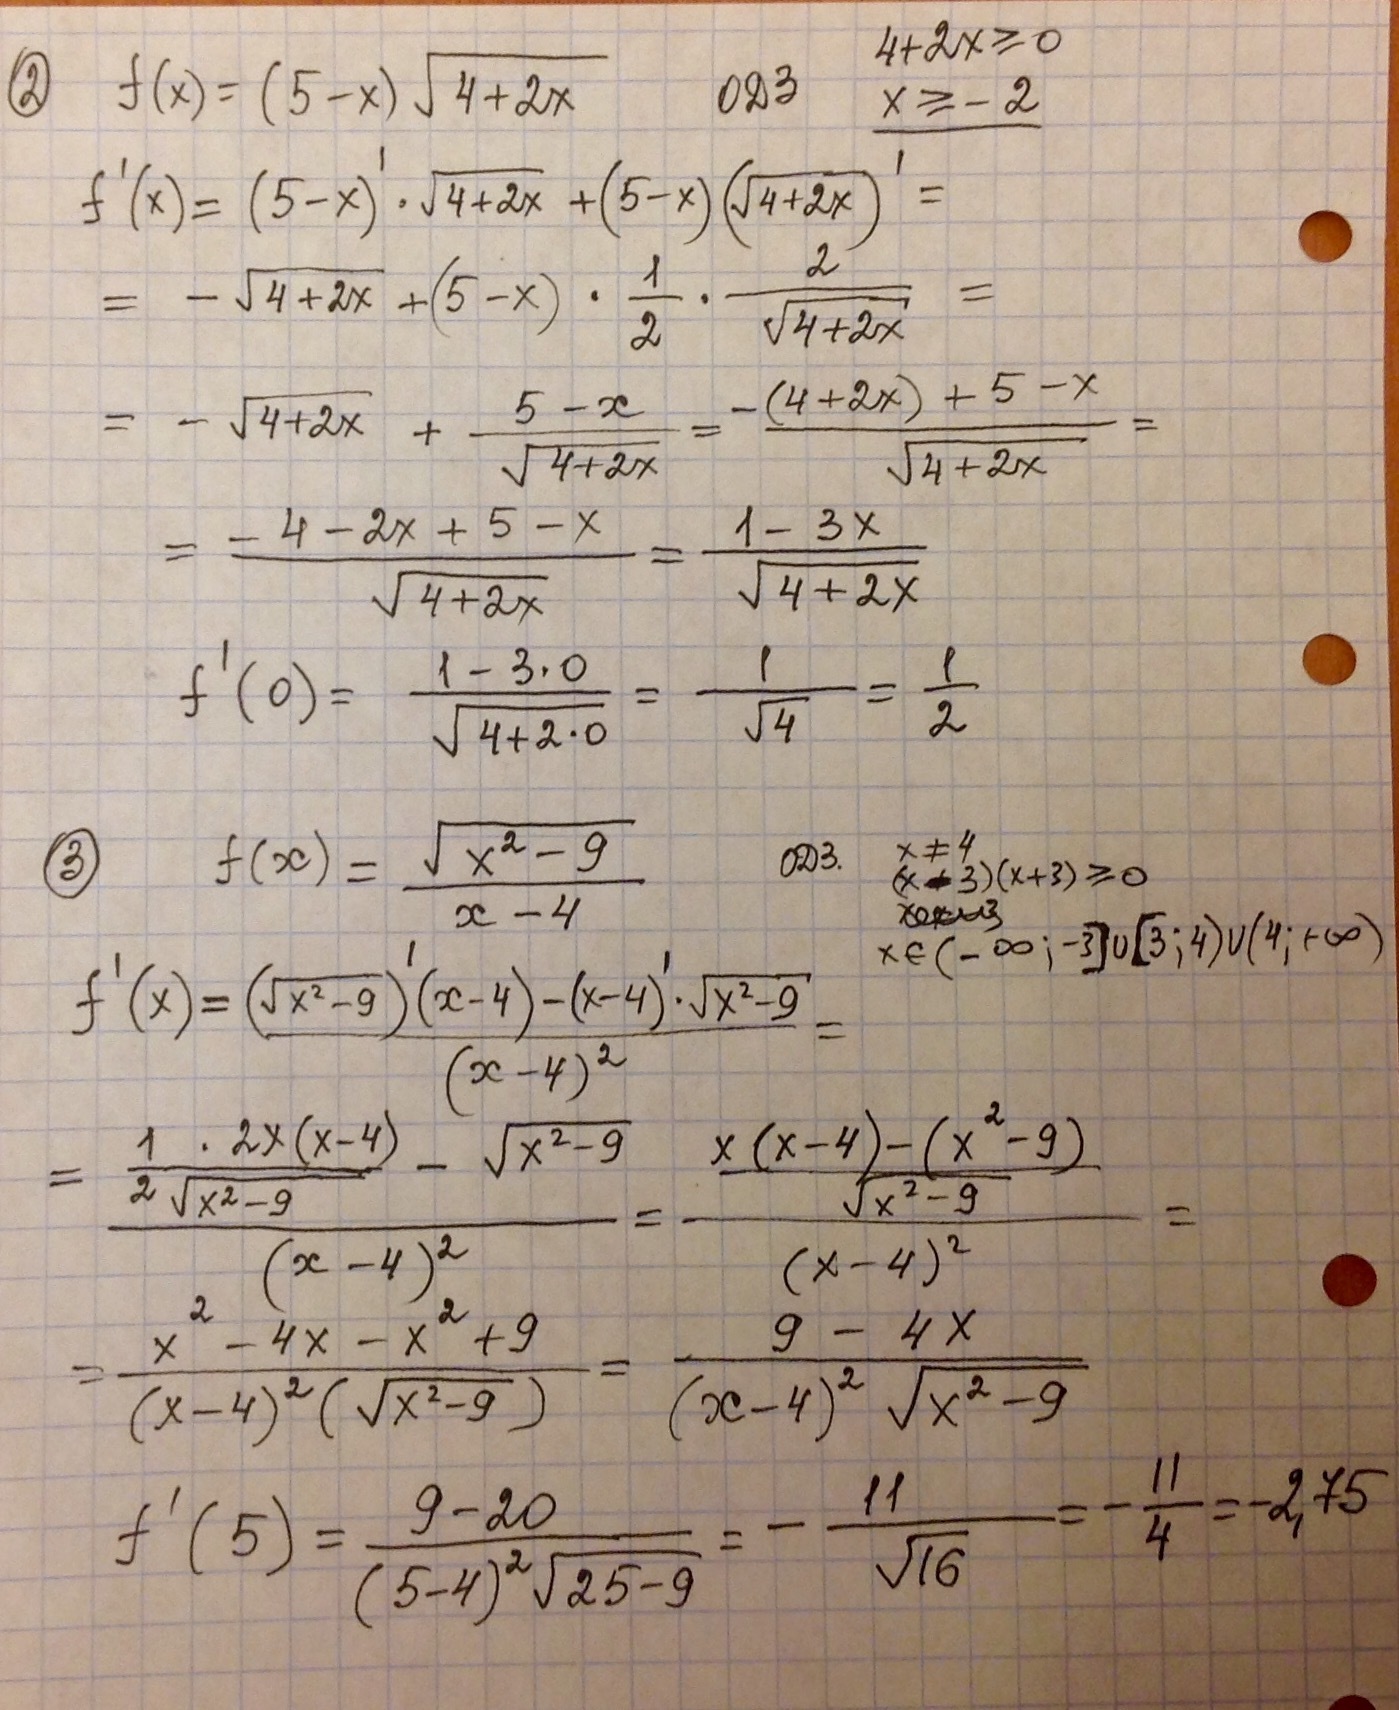 ② f(x) = (5-x) √(4+2x)    ОДЗ    4+2x ≥ 0
x ≥ -2
f'(x) = (5-x)' · √(4+2x) + (5-x)(√(4+2x))' =
= - √(4+2x) + (5-x) · 1/2 · 2/√(4+2x) =
= - √(4+2x) + (5-x)/√(4+2x) = (-(4+2x) + 5-x)/√(4+2x) =
= (-4-2x+5-x)/√(4+2x) = (1-3x)/√(4+2x)
f'(0) = (1-3·0)/√(4+2·0) = 1/√4 = 1/2
③ f(x) = √(x²-9)/(x-4)    ОДЗ.    x ≠ 4
(x-3)(x+3) ≥ 0
x ∈ (-∞; -3] ∪ [3; 4) ∪ (4; +∞)
f'(x) = ((√(x²-9))'(x-4) - (x-4)' · √(x²-9))/(x-4)² =
= (1/(2√(x²-9)) · 2x(x-4) - √(x²-9))/(x-4)² = ((x(x-4) - (x²-9))/√(x²-9))/(x-4)² =
= (x²-4x-x²+9)/((x-4)²(√(x²-9))) = (9-4x)/((x-4)² √(x²-9))
f'(5) = (9-20)/((5-4)² √(25-9)) = - 11/√16 = - 11/4 = -2,75